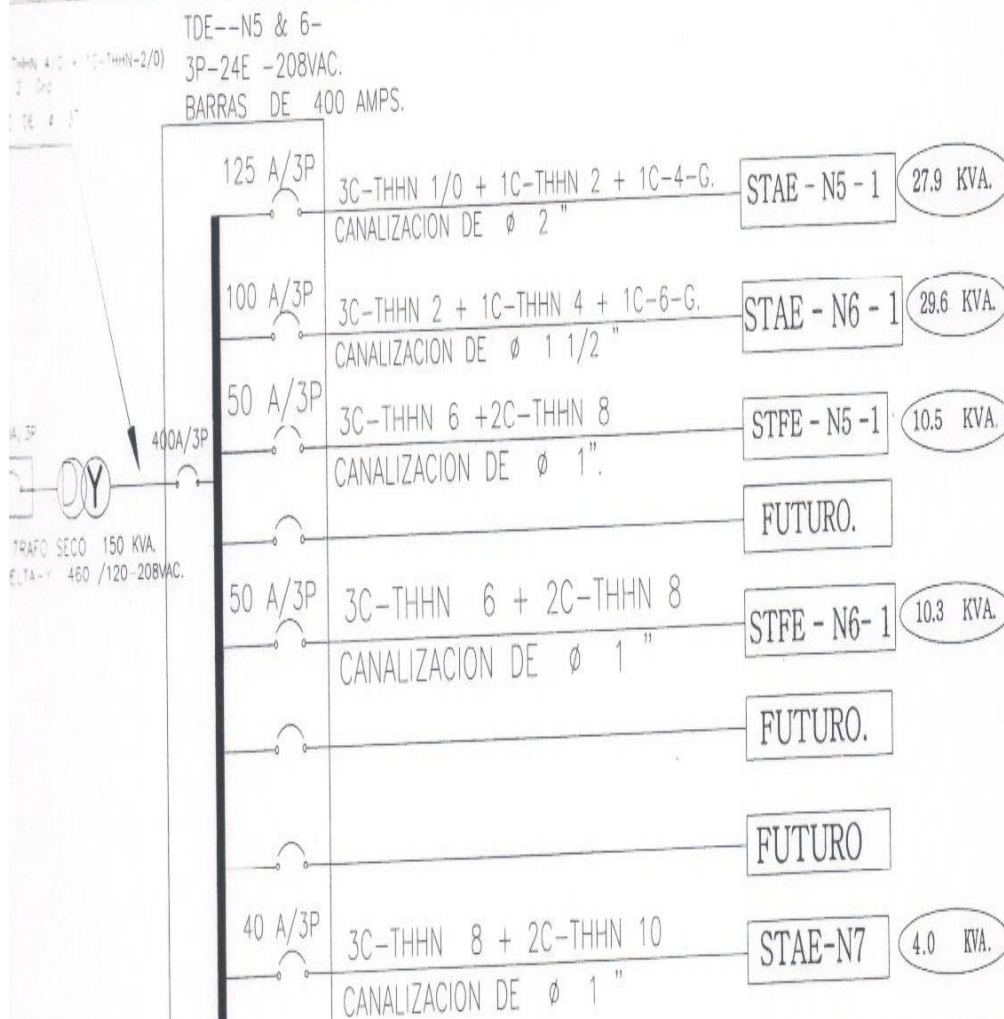 TDE--N5 & 6-
3P-24E -208VAC.
BARRAS DE 400 AMPS.
THHN-2/0)
125 A/3P
3C-THHN 1/0 + 1C-THHN 2 + 1C-4-G.
CANALIZACION DE φ 2"
STAE - N5 - 1
27.9 KVA.
100 A/3P
3C-THHN 2 + 1C-THHN 4 + 1C-6-G.
CANALIZACION DE φ 1 1/2"
STAE - N6 - 1
29.6 KVA.
50 A/3P
3C-THHN 6 +2C-THHN 8
CANALIZACION DE φ 1".
STFE - N5 -1
10.5 KVA.
400A/3P
DY
FUTURO.
TRAFO SECO 150 KVA.
460 /120-208VAC.
50 A/3P
3C-THHN 6 + 2C-THHN 8
CANALIZACION DE φ 1"
STFE - N6- 1
10.3 KVA.
FUTURO.
FUTURO
40 A/3P
3C-THHN 8 + 2C-THHN 10
CANALIZACION DE φ 1"
STAE-N7
4.0 KVA.